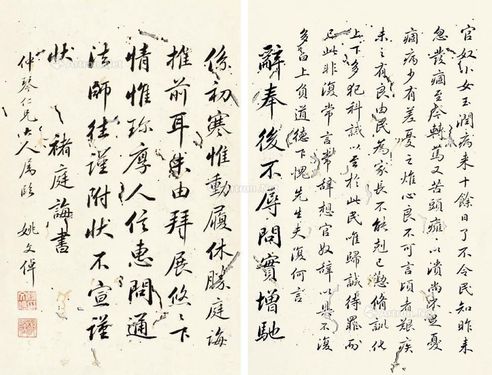 官奴小女玉潤病來十餘日了不令民知昨來
忽發痼至今轉篤又苦頭癰以潰尚不足憂
痼病少有差憂之燋心良不可言頃者艱疾
未之有良由民為家長不能剋己懃脩訓化
上下多犯科誡以至於此民唯歸誠待罪而
已此非復常言常辭想官奴辭以具不復
多白上負道德下愧先生夫復何言
辭奉後不辱問實增馳
係初寒惟動履休勝庭誨
推前耳未由拜展悠〻下
情惟珍厚人信惠問通
法師往謹附狀不宣謹
狀 褚庭誨書
仲琴仁兄大人屬臨 姚文倬